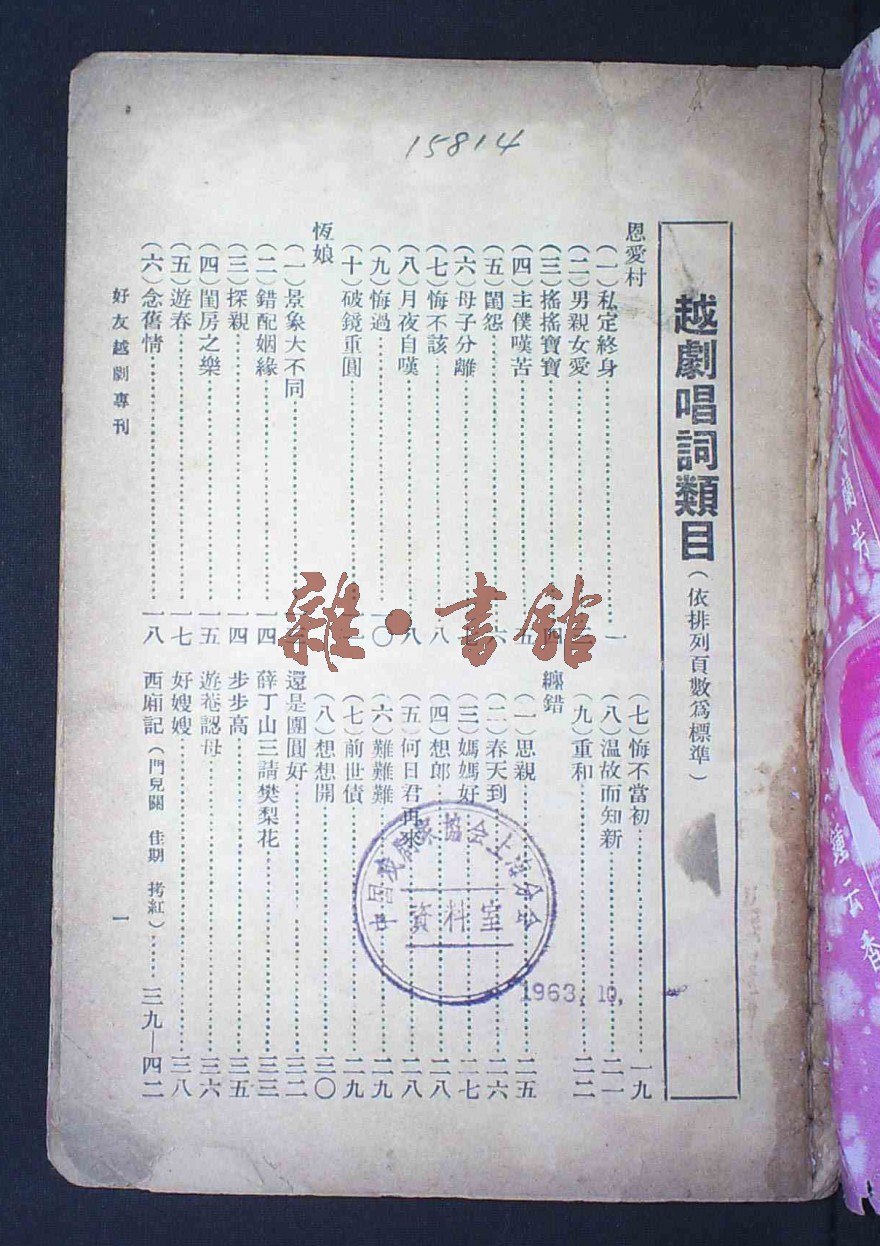 15814
越劇唱詞類目（依排列頁數爲標準）
恩愛村
（一）私定終身……一
（二）男親女愛……
（三）搖搖寶寶……四
（四）主僕嘆苦……五
（五）閨怨……六
（六）母子分離……七
（七）悔不該……八
（八）月夜自嘆……八
（九）悔過……一〇
（十）破鏡重圓……
恆娘
（一）景象大不同……
（二）錯配姻緣……一四
（三）探親……一四
（四）閨房之樂……一五
（五）遊春……一七
（六）念舊情……一八
（七）悔不當初……一九
（八）温故而知新……二一
（九）重和……二二
纏錯
（一）思親……二五
（二）春天到……二六
（三）媽媽好……二七
（四）想郎……二八
（五）何日君再來……二八
（六）難難難……二九
（七）前世債……二九
（八）想想開……三〇
還是團圓好……三二
薛丁山三請樊梨花……三三
步步高……三五
遊菴認母……三六
好嫂嫂……三八
西廂記（門兒關 佳期 拷紅）……三九—四二
好友越劇專刊
一
中国戏剧家協会上海分会
資料室
1963.10.
雜·書館
蘭芳
鍾云香